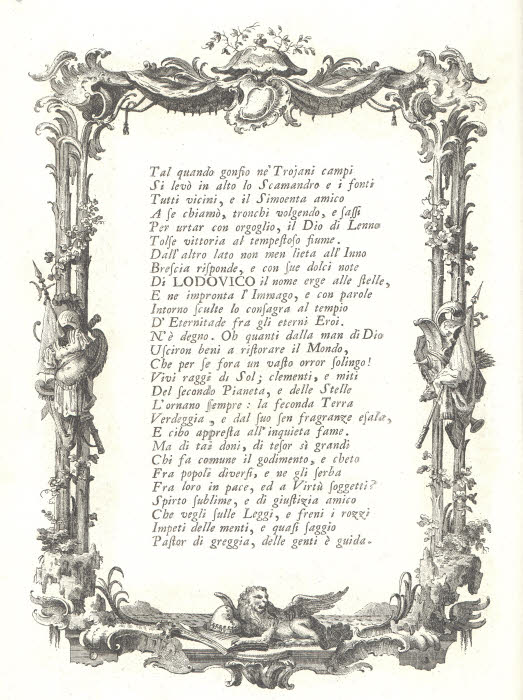 Tal quando gonfio ne' Trojani campi
Si levò in alto lo Scamandro e i fonti
Tutti vicini, e il Simoenta amico
A se chiamò, tronchi volgendo, e ſaſſi
Per urtar con orgoglio, il Dio di Lenno
Tolſe vittoria al tempeſtoſo fiume.
Dall' altro lato non men lieta all' Inno
Breſcia riſponde, e con ſue dolci note
Di LODOVICO il nome erge alle ſtelle,
E ne impronta l' Immago, e con parole
Intorno ſculte lo conſagra al tempio
D' Eternitade fra gli eterni Eroi.
N' è degno. Oh quanti dalla man di Dio
Uſciron beni a riſtorare il Mondo,
Che per ſe fora un vaſto orror ſolingo!
Vivi raggi di Sol; clementi, e miti
Del ſecondo Pianeta, e delle Stelle
L' ornano ſempre: la feconda Terra
Verdeggia, e dal ſuo ſen fragranze eſala,
E cibo appreſta all' inquieta fame.
Ma di tai doni, di teſor sì grandi
Chi fa comune il godimento, e cheto
Fra popoli diverſi, e ne gli ſerba
Fra loro in pace, ed a Virtù ſoggetti?
Spirto ſublime, e di giuſtizia amico
Che vegli ſulle Leggi, e freni i rozzi
Impeti delle menti, e quaſi ſaggio
Paſtor di greggia, delle genti è guida.